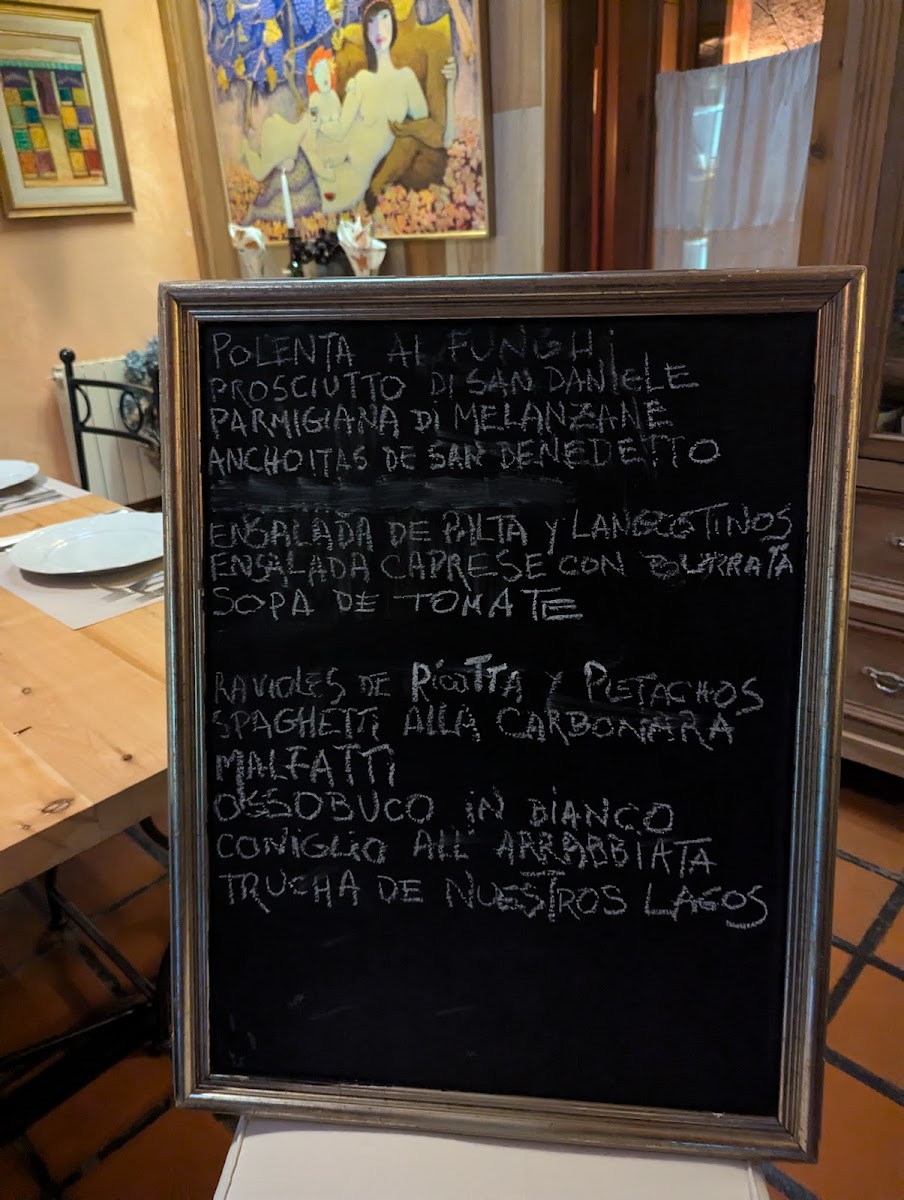 POLENTA AL FUNGHI
PROSCIUTTO DI SAN DANIELE
PARMIGIANA DI MELANZANE
ANCHOITAS DE SAN BENEDETTO
ENSALADA DE PALTA Y LANGOSTINOS
ENSALADA CAPRESE CON BURRATA
SOPA DE TOMATE
RAVIOLES DE RICOTTA Y PISTACHOS
SPAGHETTI ALLA CARBONARA
MALFATTI
OSSOBUCO IN BIANCO
CONIGLIO ALL ARRABBIATA
TRUCHA DE NUESTROS LAGOS